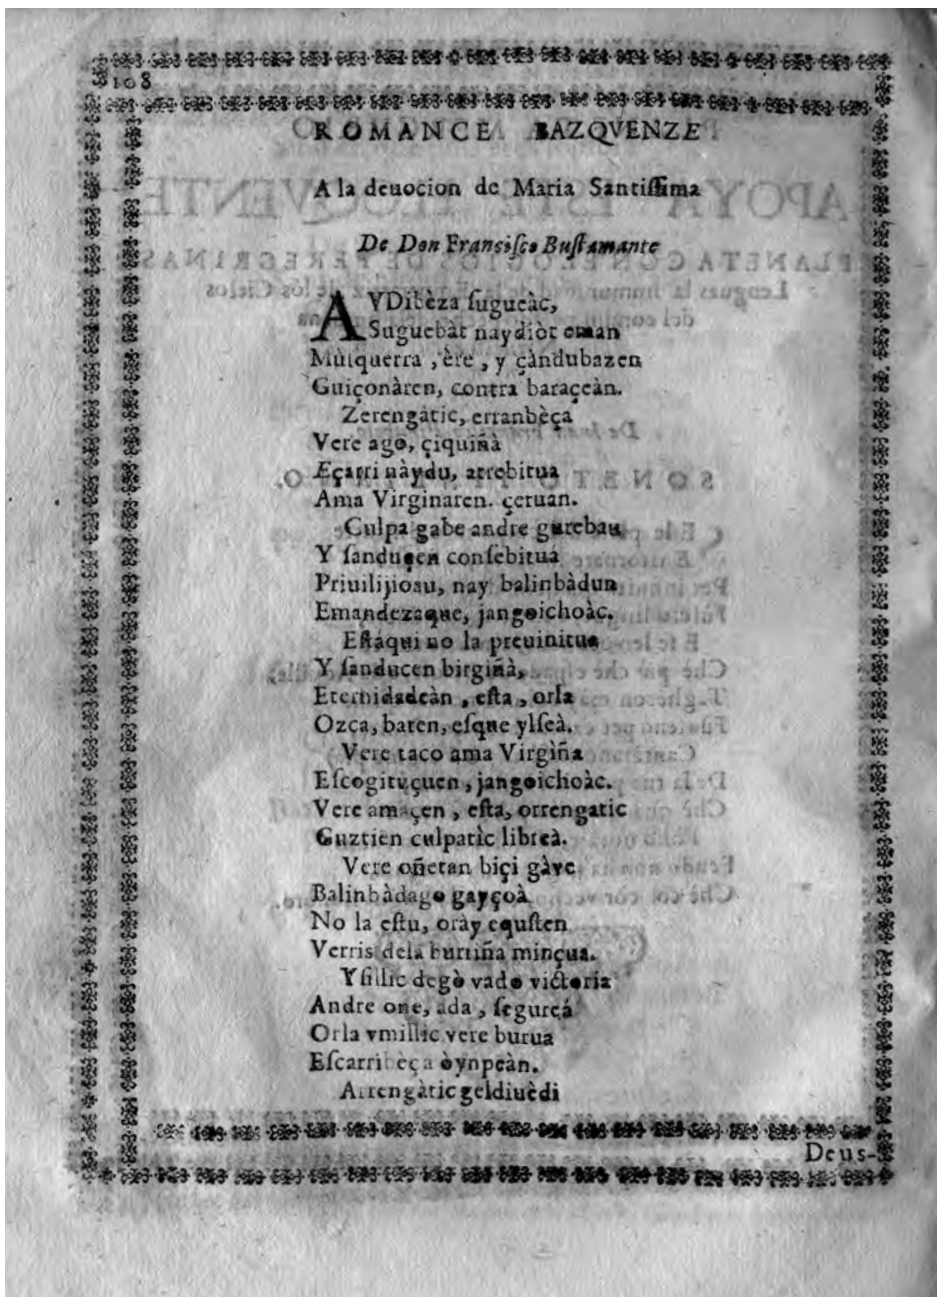 108
ROMANCE BAZQVENZE
A la deuocion de Maria Santiſſima
De Don Franciſco Buſtamante
AVDibèza ſugueàc,
Suguebàt naydiòt eman
Muiquerra , ère , y çàndubazen
Guiçonàren, contra baraçeàn.
Zerengàtic, erranbèça
Vere ago, çiquiñà
Eçarri nàydu, atrebitua
Ama Virginaren. çeruan.
Culpa gabe andre gurebau
Y ſanducen conſebitua
Priuilijioau, nay balinbàdun
Emandezaque, jangoichoàc.
Eſtàqui no la preuinitua
Y ſanducen birgiñà,
Eternidadeàn , eſta , orla
Ozca, baten, eſque ylſeà.
Vere taco ama Virgìña
Eſcogituçuen , jangoichoàc.
Vere amaçen , eſta, orrengatic
Guztien culpatìc libreà.
Vere oñetan biçi gàve
Balinbàdago gayçoà
No la eſtu, orày equſten
Verris dela burriña minçua.
Yſillic degò vado victoria
Andre one, ada , ſegureá
Orla vmillic vere burua
Eſcarribèça òynpeàn.
Arrengàtic geldiuèdi
Deus-